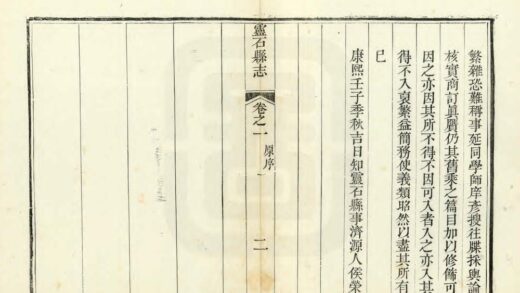 繁雜恐難稱事延同學師庠彥搜往牒採輿論
核實商訂眞贋仍其舊乘之篇目加以修僃可
因之亦因其所不得不因可入者入之亦入其
得不入裒繁益簡務使義類昭然以盡其所有
已
康熙壬子季秋吉日知靈石縣事濟源人侯榮
靈石縣志
卷之一
原序
二